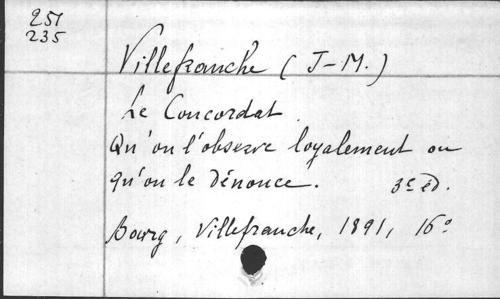 251
235
Villefranche (J-M.)
Le Concordat.
Qu'on l'observe loyalement ou
qu'on le dénonce. 3e éd.
Bourg, Villefranche, 1891, 16°